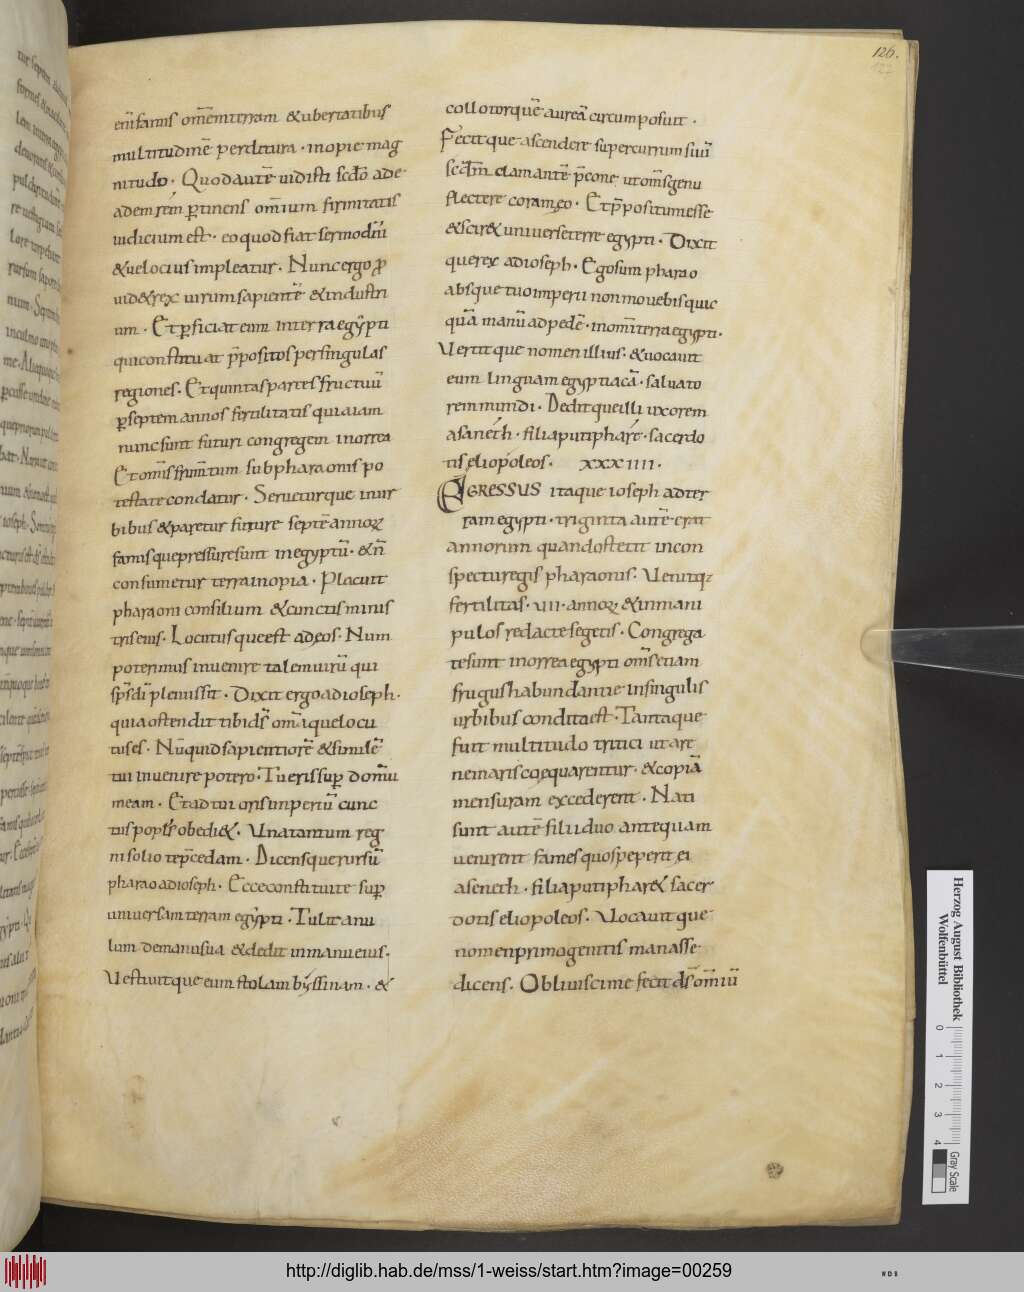 126.
eni famis omēm terram & ubertatibus
multitudinē perditura · inopie mag
nitudo · Quod autē uidisti scdō ade
adem rēm ptinens omīum firmitatis
iudicium est · eo quod fiat sermo dñi
& uelocius impleatur · Nunc ergo p
uid& rex uirum sapientē & industri
um · Et pficiat eum inter ra egypti
qui constituat ppositos per singulas
regiones · Et quintas partes fructuū
p septem annos fertilitatis qui iam
nunc sunt futuri congregem in orrea
Et omīs frumītum sub pharaonis po
testate condatur · Seruetur que in ur
bibus & paretur future septē annoꝝ
famis que pressure sunt in egyptū · & ñ
consumetur terra inopia · Placuit
pharaoni consilium & cunctis minis
tris eius · Locutus que est ad eos · Num
poterimus inuenire talem uirū qui
spū di plenus sit · Dixit ergo ad ioseph ·
quia ostendit tibi dš omīa que locu
tus es · Nūquid sapientiorē & similē
tui inuenire potero · Tu eris sup domū
meam · Et ad tui oris imperiū cunc
tus popłs obedi& · Uno tantum reg
ni solio te pcedam · Dicens que rursū
pharao ad ioseph · Ecce constitui te sup
uniuersam terram egypti · Tulit anu
lum de manu sua & dedit in manu eius ·
Uestiuit que eum stola bÿssinam · &
collo torquē aureā circum posuit ·
Fecit que ascendere super currum suū
scdm clamantē pcone ut omīs genu
flectere coram eo · Et ppositum esse
& scir& uniuerse terre egypti · Dixit
que rex ad ioseph · Ego sum pharao
absque tuo imperii non mouebis quic
quā manū ad pedē · in omī terra egypti ·
Uertit que nomen illius · & uocauit
eum lingua egyptiacā · saluato
rem mundi · Dedit que illi uxorem
asanéth · filia putiphare · sacerdo
tis eliopoleos · xxxiiii ·
EGRESSUS itaque ioseph ad ter
ram egypti · triginta autē erat
annorum quando stetit in con
spectu regis pharaonis · Uenitq;
fertilitas · uii · annoꝝ & in mani
pulos redacte segetis · Congrega
te sunt in orrea egypti omīs etiam
frugus habundantie in singulis
urbibus condita est · Tanta que
fuit multitudo tritici ut are
ne maris coequarentur · & copiā
mensuram excederent · Nati
sunt autē filii duo antequam
uenirent fames quos peperit ei
aseneth · filia putiphar& sacer
dotis eliopoleos · Uocauit que
nomen primogenitis manasse
dicens · Obliuisci me fecit dš omīū
Herzog August Bibliothek
Wolfenbüttel
0 1 2 3 4
Gray Scale
http://diglib.hab.de/mss/1-weiss/start.htm?image=00259